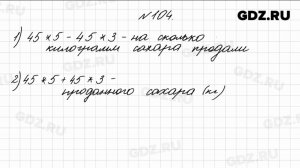 GDZ.RU
№104
1) 45 * 5 - 45 * 3 - на сколько
килограмм сахара продали
2) 45 * 5 + 45 * 3 -
проданного сахара (кг)